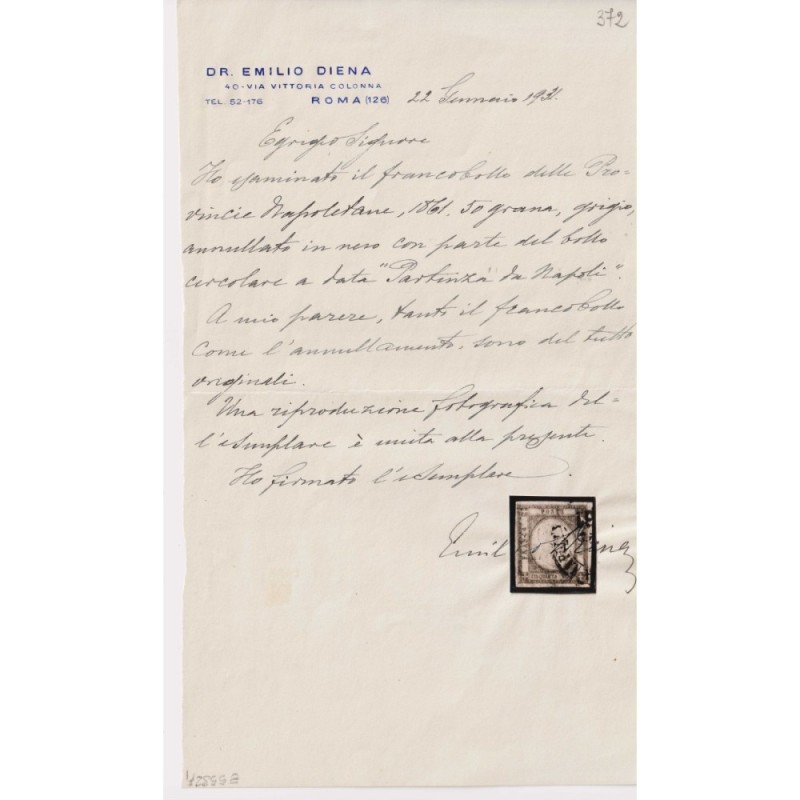 372
DR. EMILIO DIENA
40-VIA VITTORIA COLONNA
TEL. 52-176 ROMA (126)
22 Gennaio 1931.
Egregio Signore
Ho esaminato il francobollo delle Pro-
vincie Napoletane, 1861. 50 grana, grigio,
annullato in nero con parte del bollo
circolare a data "Partenza da Napoli".
A mio parere, tanto il francobollo
come l'annullamento, sono del tutto
originali.
Una riproduzione fotografica del-
l'esemplare è unita alla presente.
Ho firmato l'esemplare.
Emilio Diena